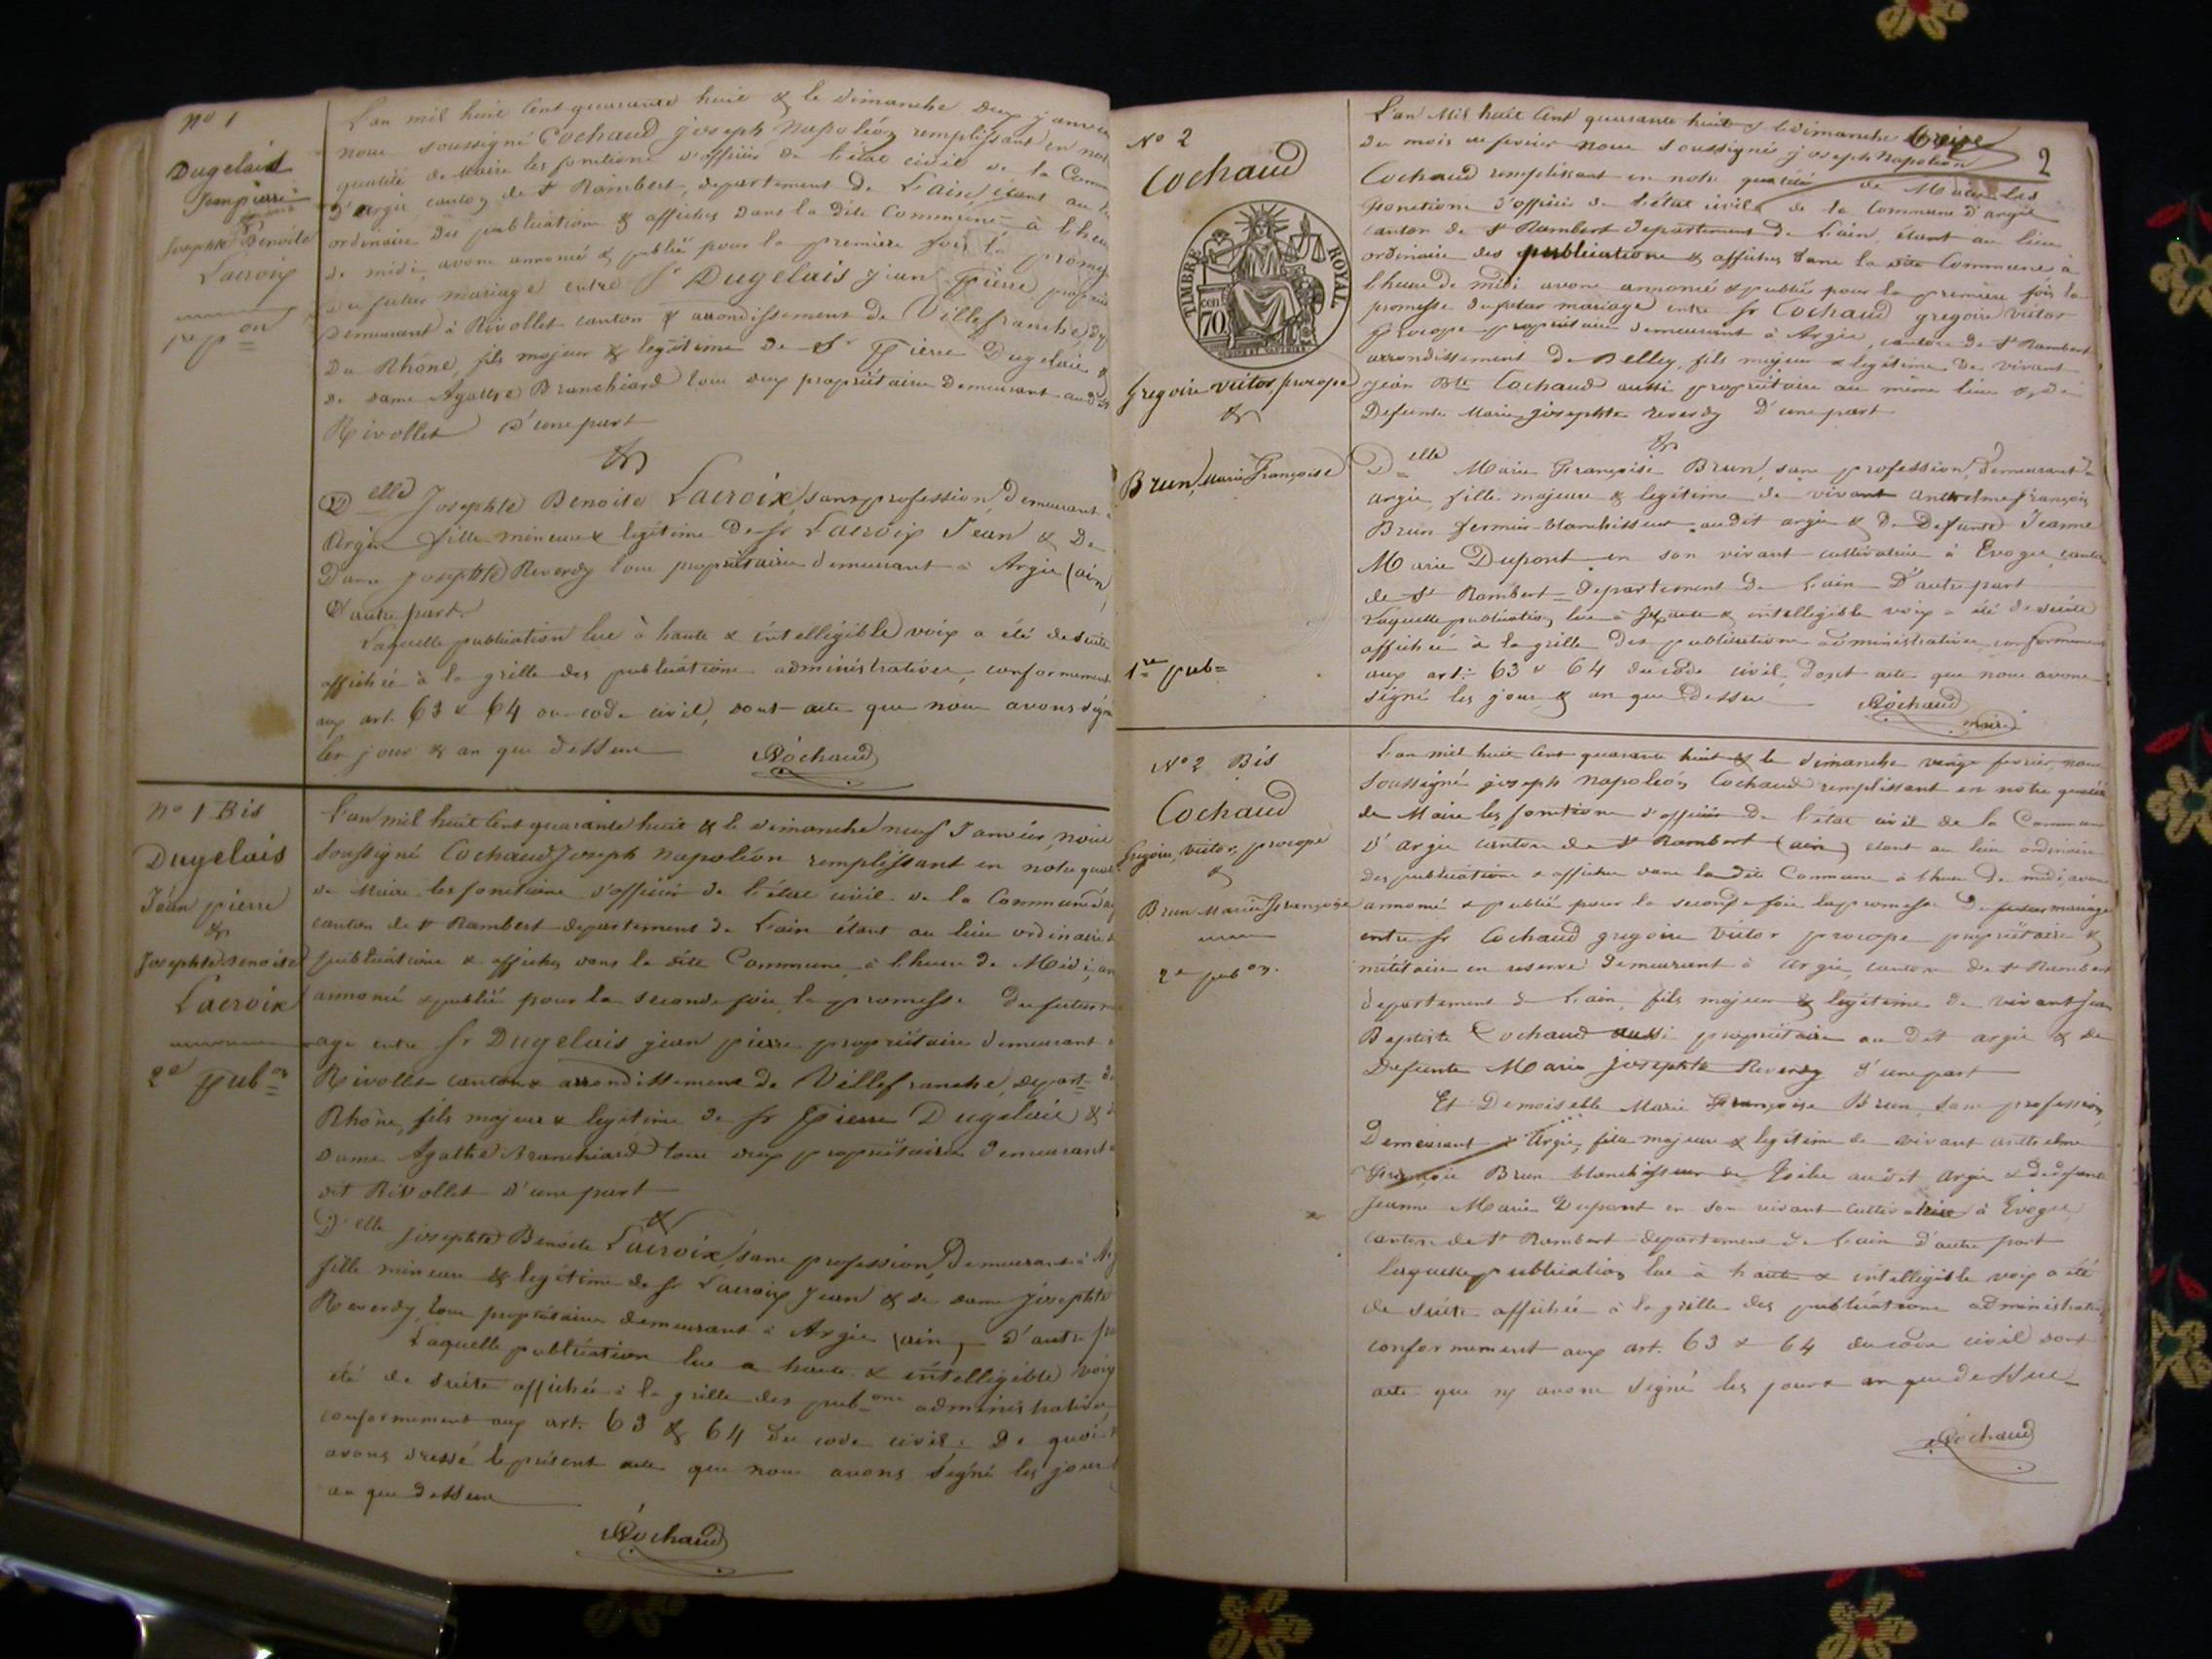 No 1
Dugelais
Jean pierre
&
Josephte Benoite
Lacroix
1re pon
L'an mil huit cent quarante huit & le dimanche deux janvier
nous soussigné Cochaud joseph Napoléon remplissant en notre
qualité de Maire les fonctions d'officier de l'état civil de la Comm
d'argis canton de St Rambert, departement de L'ain, étant au lieu
ordinaire des publications & affiches dans la dite Commune à l'heure
de midi, avons annoncé & publié pour la premiere fois la promesse
du futur mariage entre Sr Dugelais jean Pierre propriét
demeurant à Rivollet canton & arrondissement de Villefranche, dep
du Rhône, fils majeur & legitime de Sr Pierre Dugelais &
de dame Agathe Branchiard tous deux propriétaires demeurant audit
Rivollet d'une part
&
Delle Josephte Benoite Lacroix, sans profession, demeurant à
Argis fille mineure & legitime de Sr Lacroix Jean & De
Dame Josephte Reverdy tous propriétaires demeurant à Argis (ain)
d'autre part.
Laquelle publication lue à haute & intelligible voix a été de suite
affichée à la grille des publications administratives, conformement
aux art. 63 & 64 du code civil, dont acte que nous avons signé
les jour & an que dessus
Cochaud
No 1 Bis
Dugelais
Jean pierre
&
Josephte Benoite
Lacroix
2e Pubon
L'an mil huit cent quarante huit & le dimanche neuf Janvier, nous
soussigné Cochaud Joseph Napoléon remplissant en notre qual
de Maire les fonctions d'officier de l'état civil de la Commune d'ar
canton de St Rambert departement de L'ain étant au lieu ordinaire d
publications & affiches dans la dite Commune à l'heure de Midi, av
annoncé & publié pour la seconde fois la promesse du futur m
age entre Sr Dugelais jean pierre propriétaire demeurant à
Rivollet canton & arrondissement de Villefranche, depart. du
Rhône, fils majeur & legitime de Sr Pierre Dugelais & d
dame Agathe Branchiard tous deux propriétaires demeurant a
dit Rivollet d'une part
&
Delle josephte Benoite Lacroix, sans profession, Demeurant à Ar
fille mineure & legitime de Sr Lacroix Jean & de dame Josephte
Reverdy, tous propriétaires demeurant à Argis (ain) D'autre pa
Laquelle publication lue a haute & intelligible voix
été de suite affichée à la grille des pubons administratives
conformement aux art. 63 & 64 du code civil. De quoi n
avons dressé le présent acte que nous avons signé les jour &
an que dessus
Cochaud
2
No 2
Cochaud
TIMBRE ROYAL
cen
70
Gregoire victor, procope
&
Brun, Marie Françoise
1re pub=
L'an Mil huit cent quarante huit & le dimanche treize
du mois de fevrier nous soussigné joseph Napoléon
Cochaud remplissant en notre qualité de Maire les
fonctions d'officier de l'état civil de la Commune d'argis
canton de St Rambert departement de L'ain, étant au lieu
ordinaire des publications & affiches dans la dite Commune à
l'heure de midi avons annoncé & publié pour la premiere fois la
promesse du futur mariage entre Sr Cochaud gregoire victor
procope propriétaire demeurant à Argis, canton de St Rambert
arrondissement de Belley, fils majeur & legitime de vivant
jean Bte Cochaud aussi propriétaire au même lieu & de
Defunte Marie josephte reverdy D'une part
&
Delle Marie Françoise Brun, sans profession, demeurant à
argis, fille majeure & legitime de vivant anthelme françois
Brun fermier blanchisseur audit argis & de Defunte Jeanne
Marie Dupont en son vivant cultivatrice à Evoges, canton
de St Rambert departement de L'ain D'autre part
Laquelle publication lue à haute & intelligible voix a été de suite
affichée à la grille des publications administratives conformement
aux art: 63 & 64 du code civil, dont acte que nous avons
signé les jour & an que dessus
Cochaud
maire
No 2 Bis
Cochaud
Gregoire, victor, procope
&
Brun Marie Françoise
2e pubon.
L'an mil huit cent quarante huit & le dimanche vingt fevrier, nous
soussigné joseph Napoléon Cochaud remplissant en notre qualité
de Maire les fonctions d'officier de l'état civil de la Commune
d'argis canton de St Rambert (ain) étant au lieu ordinaire
des publications & affiches dans la dite Commune à l'heure de midi, avons
annoncé & publié pour la seconde fois la promesse de futur mariage
entre Sr Cochaud gregoire victor procope propriétaire &
militaire en reserve demeurant à argis canton de St Rambert
departement de L'ain, fils majeur & legitime de vivant Jean
Baptiste Cochaud aussi propriétaire au dit argis & de
Defunte Marie Josephte Reverdy d'une part
Et Demoiselle Marie Françoise Brun, sans profession
Demeurant à Argis, fille majeure & legitime de vivant anthelme
François Brun blanchisseur de toiles audit argis & de defunte
Jeanne Marie Dupont en son vivant cultivatrice à Evoges,
canton de St Rambert departement de L'ain d'autre part
laquelle publication lue à haute & intelligible voix a été
de suite affichée à la grille des publications administratives
conformement aux art. 63 & 64 du code civil dont
acte que ns avons signé les jour & an que dessus
Cochaud